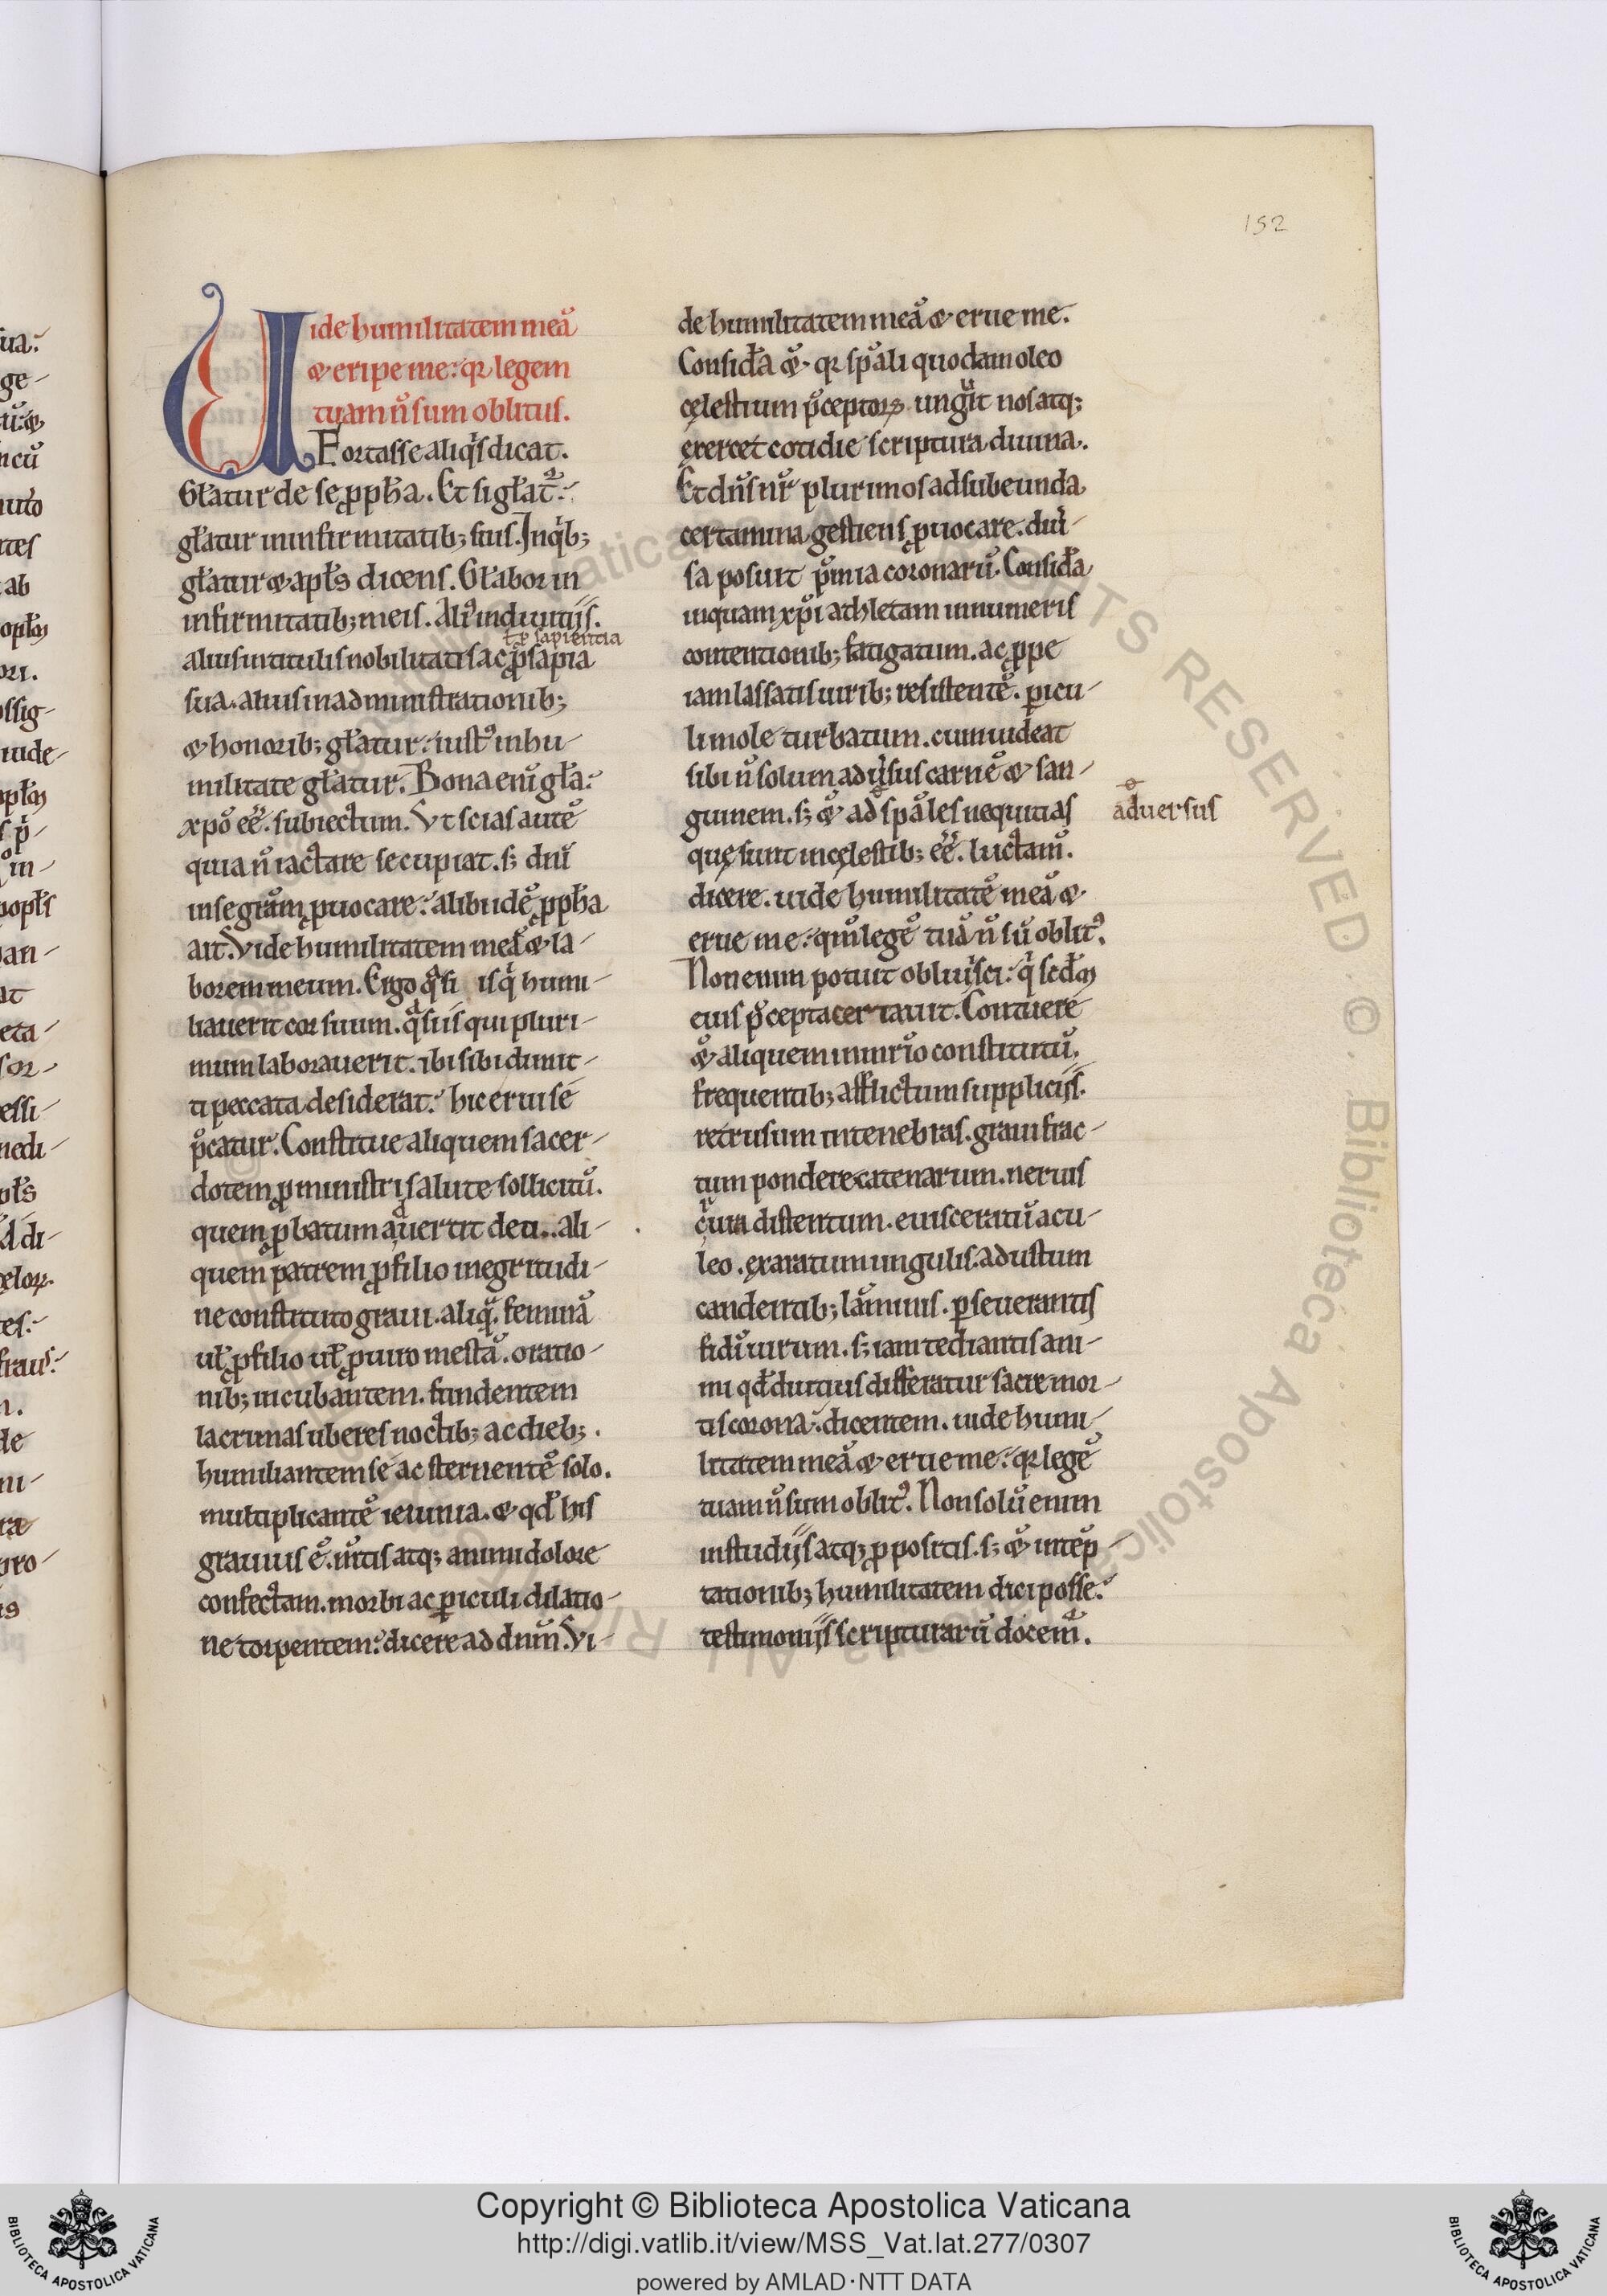 152
Uide humilitatem meā
& eripe me: qr legem
tuam n̄ sum oblitus.
Fortasse aliqͥs dicat.
Gƚatur de se ꝓpħa. Et si gƚat᷑.
gƚatur in infirmitatib; suis. In qͥb;
gƚatur & apƚs dicens. Gƚabor in
infirmitatib; meis. Aliꝰ in diuitiis.
ł sapientia
alius in titulis nobilitatis ac ꝓsapia
sua. alius in administrationib;
& honorib; gƚatur: iustꝰ in hu-
militate gƚatur. Bona enī gƚa:
xp̄o ēē subiectum. Vt scias autē
quia n̄ iactare se cupiat. s; dnī
in se grām ꝓuocare: alibi idē ꝓpħa
ait. Vide humilitatem meā & la-
borem meum. Ergo qͣsi is qͥ humi-
liauerit cor suum. qͣsi is qui pluri-
mum laborauerit. ibi sibi dimit-
ti peccata desiderat: hic erui se
p̄catur. Constitue aliquem sacer-
dotem ꝓ ministri salute sollicitū.
quem ꝓbatum aduertit deti.. ali-
quem patrem ꝓ filio in egritudi-
ne constituto graui. aliqͣ feminā
uƚ ꝓ filio uƚ ꝓ uiro mestā. oratio-
nib; incubantem. fundentem
lacrimas uberes noctib; ac dieb;.
humiliantem se ac sternentē solo.
multiplicantē ieiunia. & qđ his
grauius ē. uirtis atq; animi dolore
confectam. morbi ac ꝑiculi dilatio-
ne torpentem: dicere ad dnm̄. Vi-
de humilitatem meā & erue me.
Consida &. qr sp̄ali quodam oleo
cęlestium p̄ceptoꝝ ungit nos atq;
exercet cotidie scriptura diuina.
Et dn̄s nr̄ plurimos ad subeunda
certamina gestiens ꝓuocare. diui-
sa posuit p̄mia coronarū. Consida
inquam xp̄i athletam innumeris
contentionib; fatigatum. ac ꝓpe
iam lassatis uirib; resistentē. ꝑicu-
li mole turbatum. cum uideat
sibi n̄ solum aduͥsus carnē & san-
guinem. s; & ad sp̄ales nequitias
aduersus
quę sunt in cęlestib; ēē luctam.
dicere. uide humilitatē meā &
erue me: qm̄ legē tuā n̄ sū oblitꝰ.
Non enim potuit obliuisci: qͥ scdm
eius p̄cepta certauit. Contuere
& aliquem in mrīo constitutū.
frequentib; afflictum suppliciis.
retrusum in tenebras. graui frac-
tum pondere catenarum. neruis
crura distentum. euisceratū acu-
leo. exaratum ungulis. adustum
candentib; lāminis. ꝑseuerantis
fidī uirum. s; iam tediantis ani-
mi qđ diutius differatur sacre mor-
tis corona: dicentem. uide humi-
litatem meā & erue me: qr legē
tuam n̄ sum oblitꝰ. Non solū enim
in studiis atq; ꝓpositis. s; & in tēp-
tationib; humilitatem dici posse:
testimoniis scripturarū docem᷑.
Copyright © Biblioteca Apostolica Vaticana
http://digi.vatlib.it/view/MSS_Vat.lat.277/0307
powered by AMLAD·NTT DATA